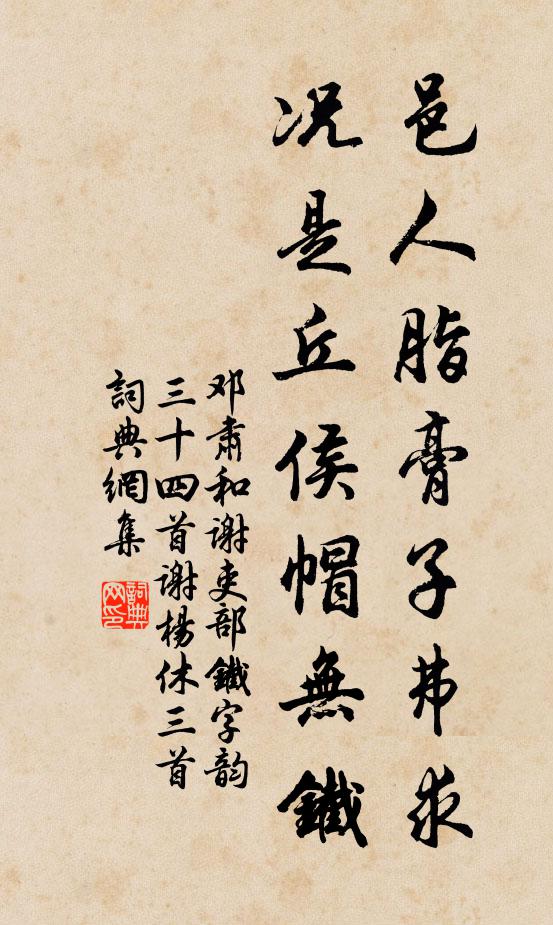 邑人脂膏子弗求
况是丘侯帽無鐵
邓肅和谢吏部鐵字韵
三十四首谢楊休三首
詞典網集
詞典网印